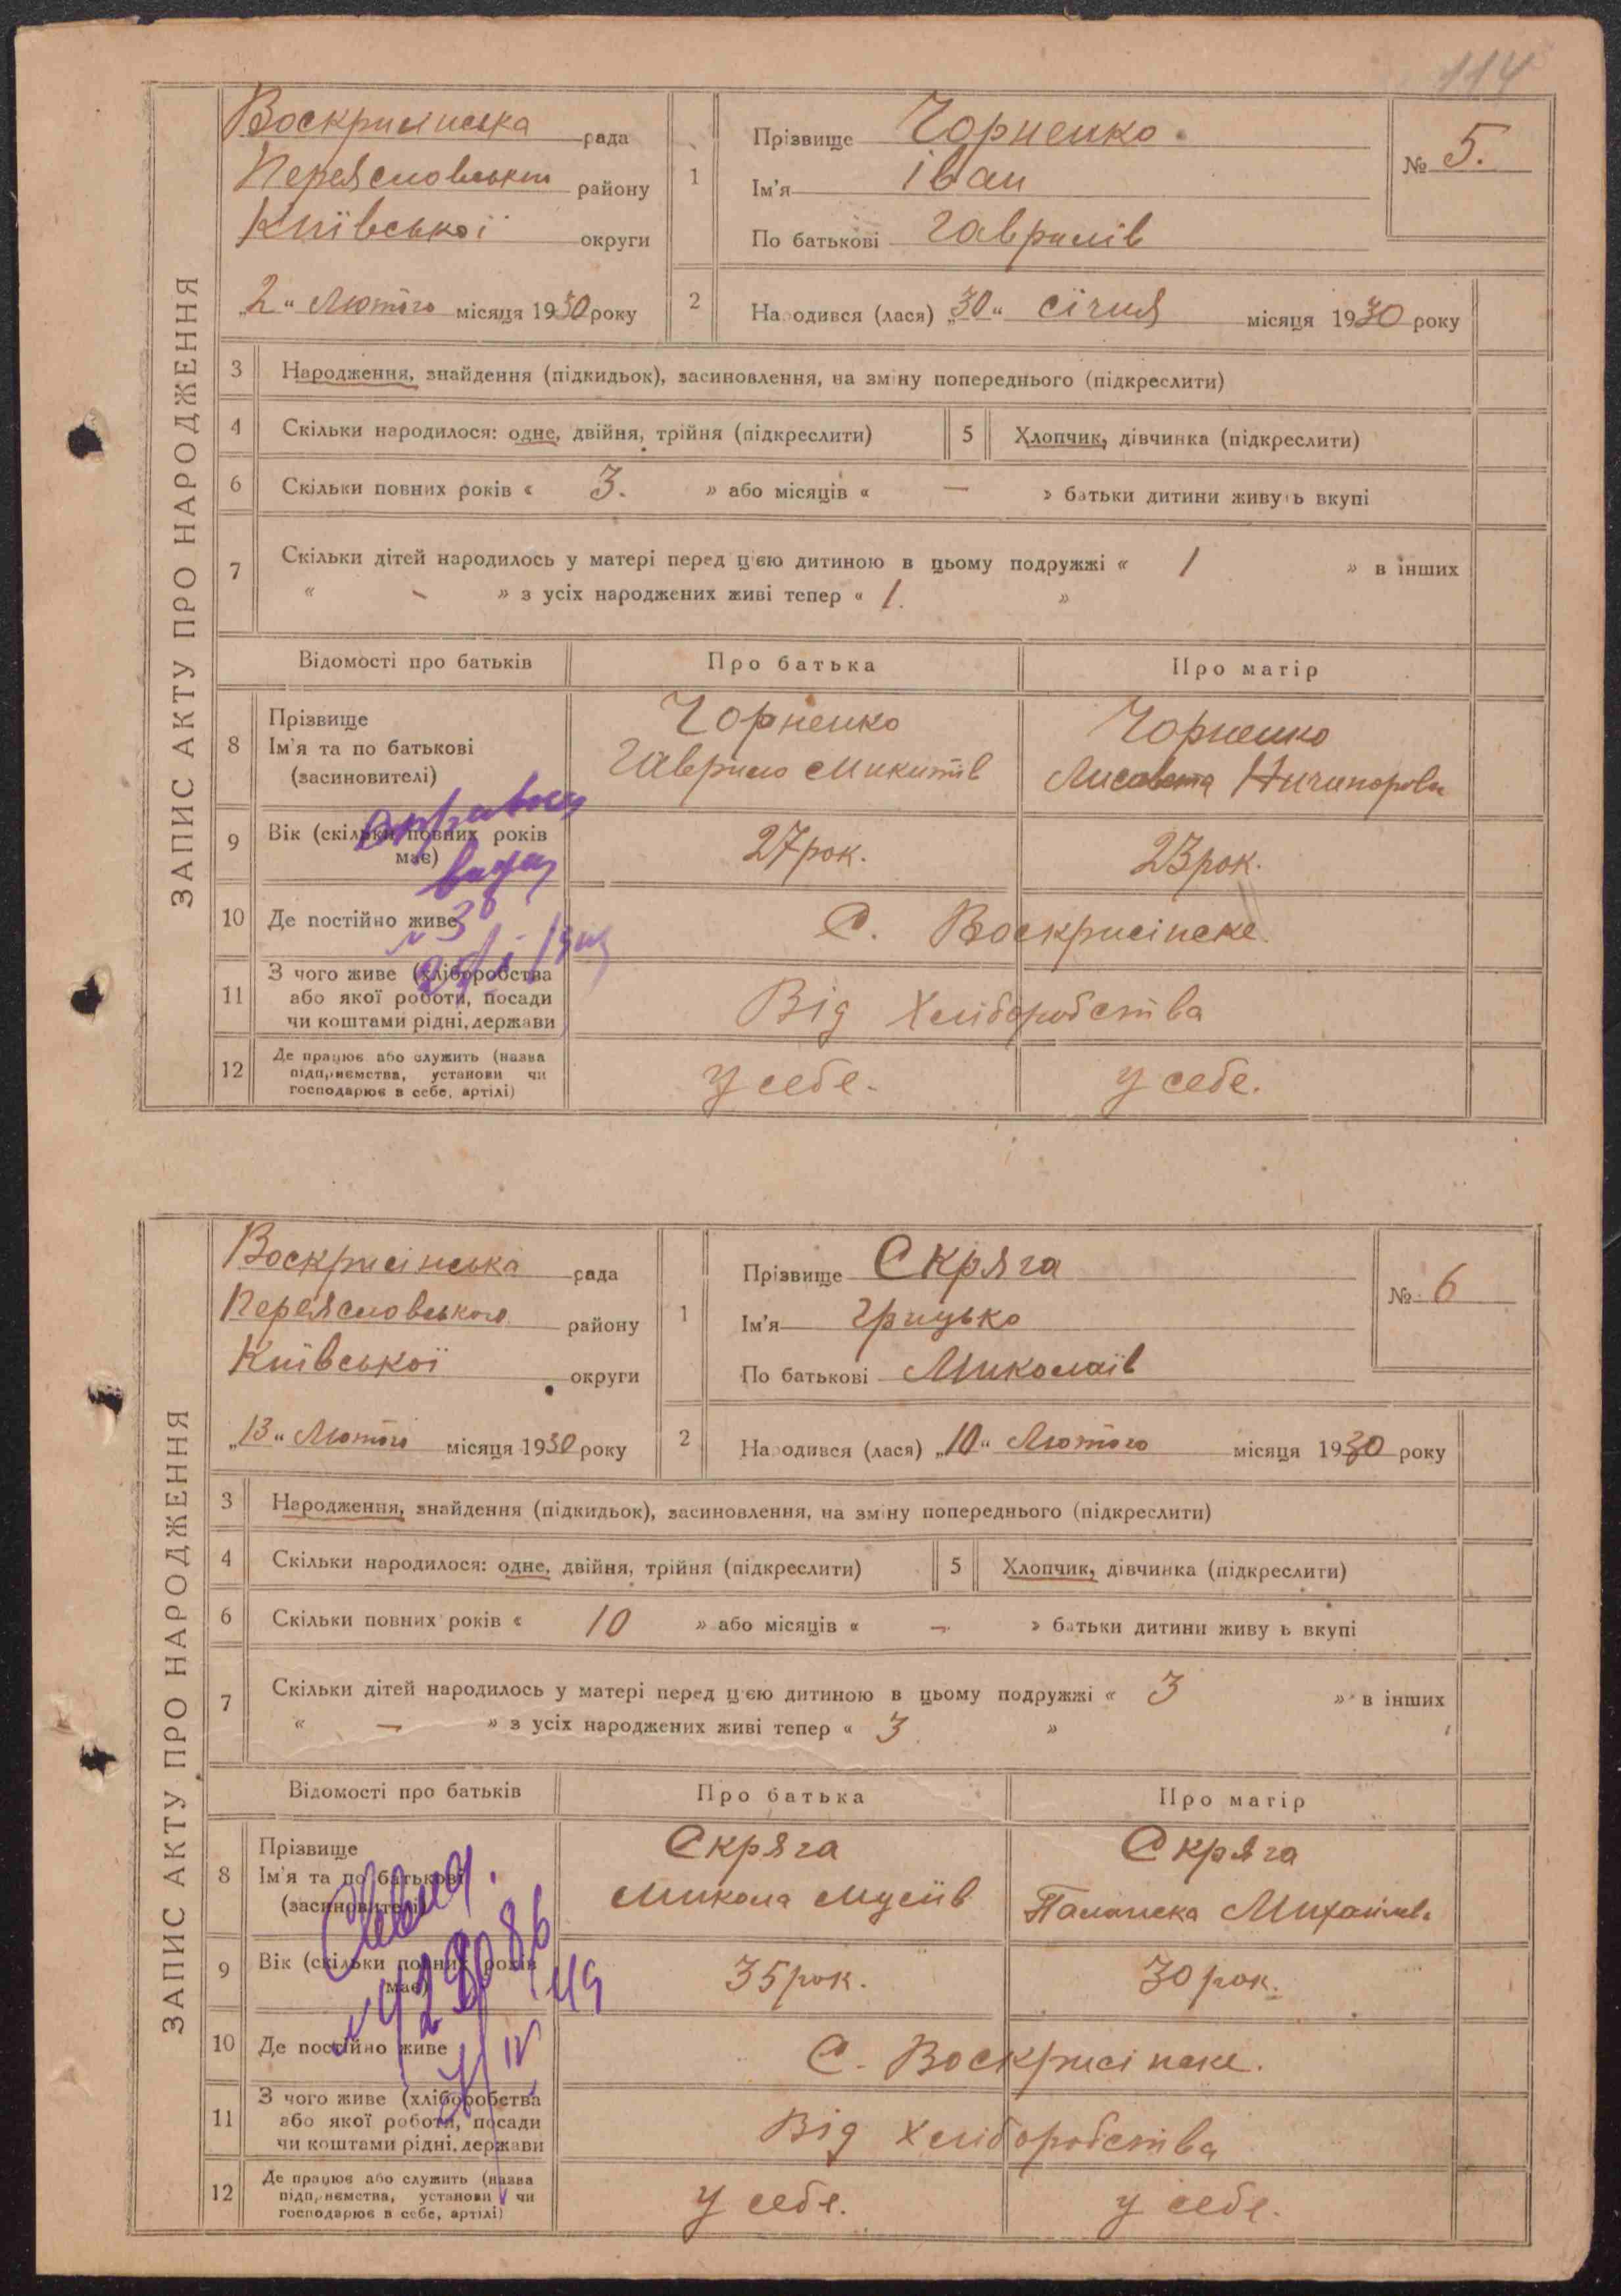 114
ЗАПИС АКТУ ПРО НАРОДЖЕННЯ
Воскрисінська рада
Переясловського району
Київської округи
„2“ Лютого місяця 1930 року
1
Прізвище Чорненко
Ім'я Іван
По батькові Гаврилів
№ 5.
2
Народився (лася) „30“ січня місяця 1930 року
3 Народження, знайдення (підкидьок), засиновлення, на зміну попереднього (підкреслити)
4 Скільки народилося: одне, двійня, трійня (підкреслити) 5 Хлопчик, дівчинка (підкреслити)
6 Скільки повних років « 3. » або місяців « — » батьки дитини живуть вкупі
7 Скільки дітей народилось у матері перед цією дитиною в цьому подружжі « 1 » в інших
« - » з усіх народжених живі тепер « 1. »
Відомості про батьків Про батька Про матір
8 Прізвище
Ім'я та по батькові
(засиновителі)
Чорненко
Гаврило Микитів
Чорненко
Лисавета Ничипорівн
9 Вік (скільки повних років
має)
27 рок. 23 рок.
10 Де постійно живе С. Воскрисінске.
11 З чого живе (хліборобства
або якої роботи, посади
чи коштами рідні, держави
Від Хліборобства
12 Де працює або служить (назва
підприємства, установи чи
господарює в себе, артілі)
У себе. У себе.
ЗАПИС АКТУ ПРО НАРОДЖЕННЯ
Воскрисінська рада
Переясловського району
Київської округи
„13“ Лютого місяця 1930 року
1
Прізвище Скряга
Ім'я Грицько
По батькові Миколаїв
№ 6
2
Народився (лася) „10“ Лютого місяця 1930 року
3 Народження, знайдення (підкидьок), засиновлення, на зміну попереднього (підкреслити)
4 Скільки народилося: одне, двійня, трійня (підкреслити) 5 Хлопчик, дівчинка (підкреслити)
6 Скільки повних років « 10 » або місяців « — » батьки дитини живуть вкупі
7 Скільки дітей народилось у матері перед цією дитиною в цьому подружжі « 3 » в інших
« — » з усіх народжених живі тепер « 3 »
Відомості про батьків Про батька Про матір
8 Прізвище
Ім'я та по батькові
(засиновителі)
Скряга
Микола Мусіїв
Скряга
Палажка Михайлівн
9 Вік (скільки повних років
має)
35 рок. 30 рок.
10 Де постійно живе С. Воскрисінске.
11 З чого живе (хліборобства
або якої роботи, посади
чи коштами рідні, держави
Від Хліборобства
12 Де працює або служить (назва
підприємства, установи чи
господарює в себе, артілі)
У себе. У себе.